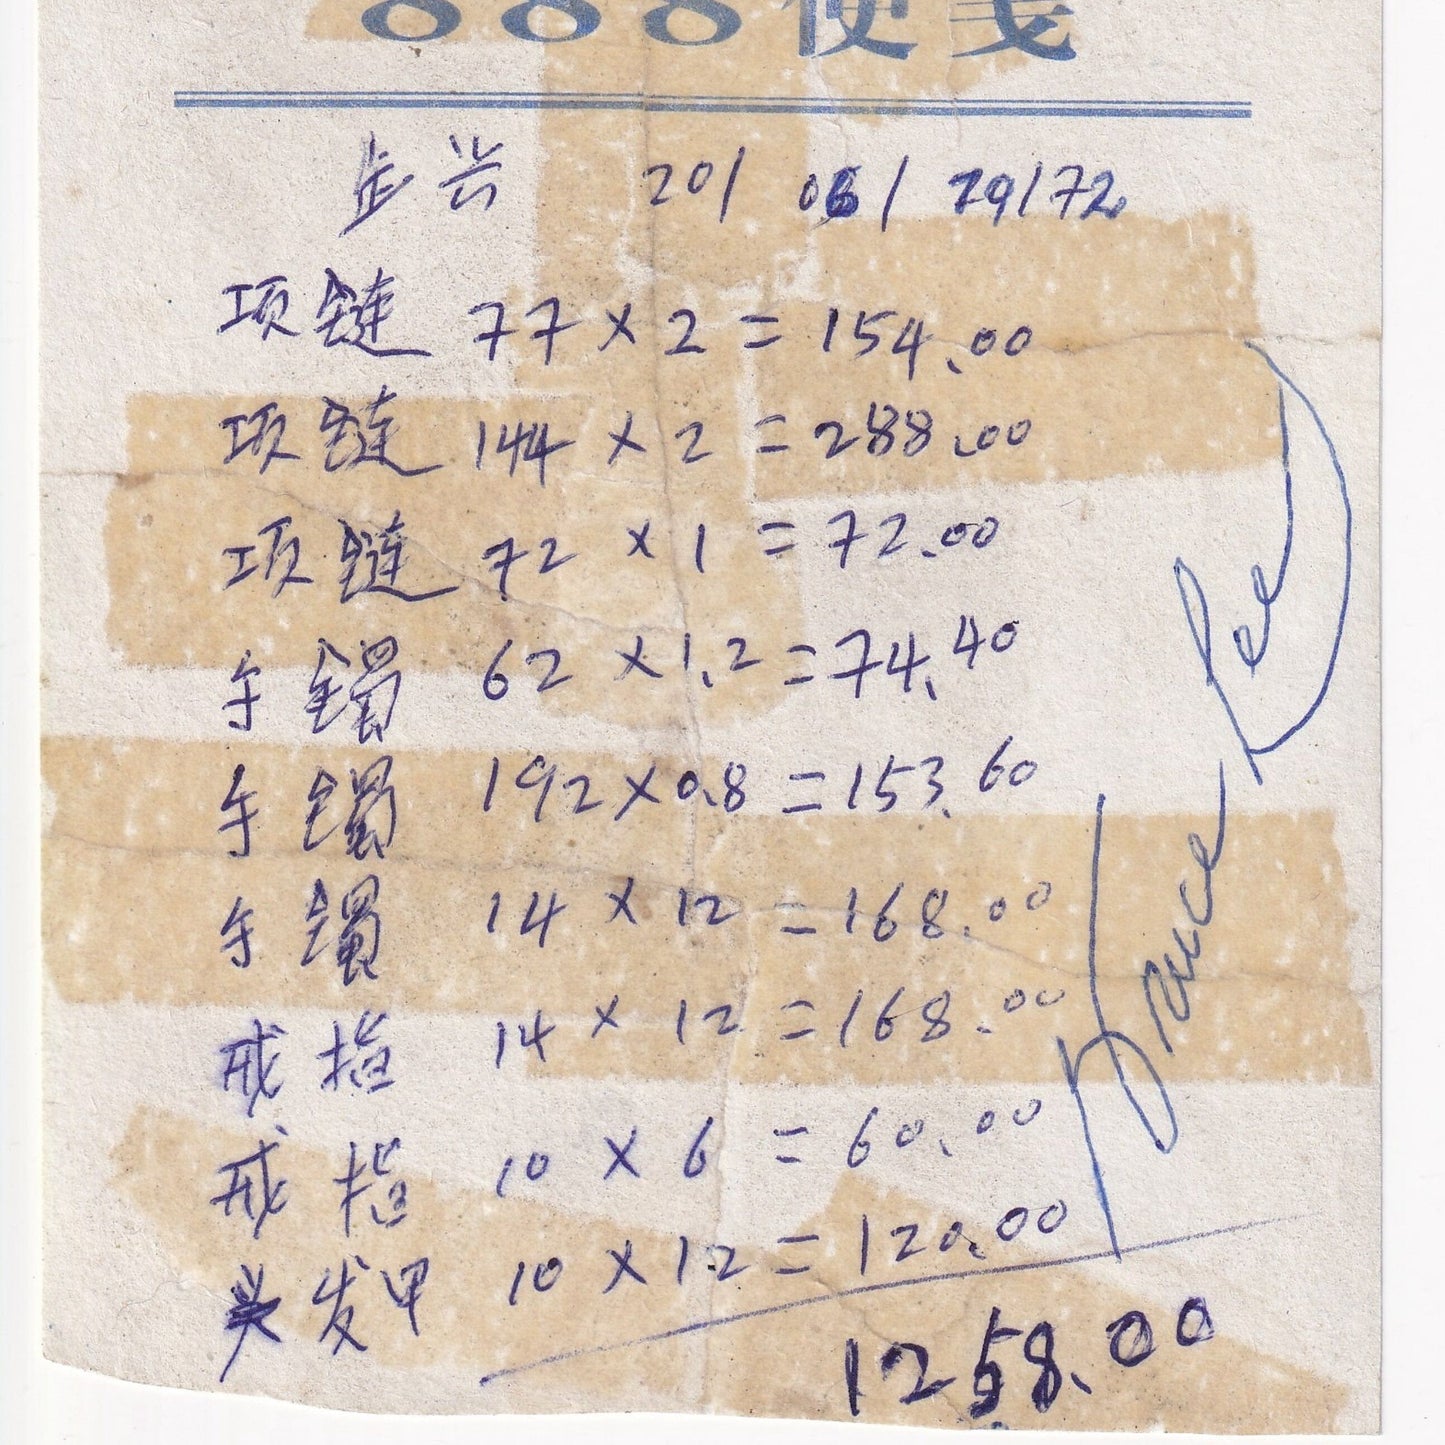 888便笺
永兴 20/ 06/ 29/72
项链 77 × 2 = 154.00
项链 144 × 2 = 288.00
项链 72 × 1 = 72.00
手镯 62 × 1.2 = 74.40
手镯 192 × 0.8 = 153.60
手镯 14 × 12 = 168.00
戒指 14 × 12 = 168.00
戒指 10 × 6 = 60.00
头发甲 10 × 12 = 120.00
1258.00